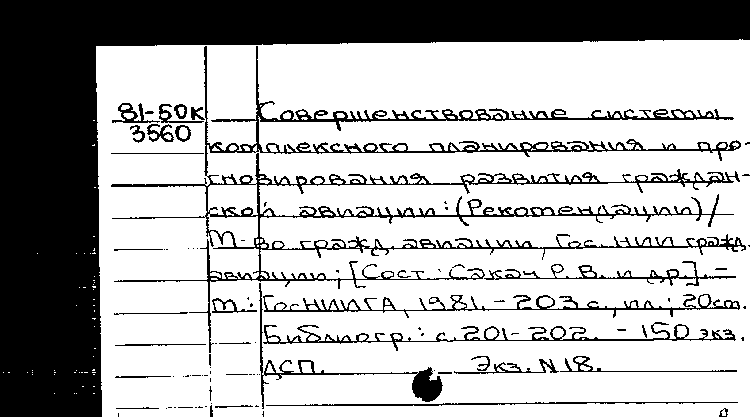 81-50к Совершенствование системы
3560
комплексного планирования и про-
гнозирования развития граждан-
ской авиации: (Рекомендации) /
М-во гражд. авиации, Гос. НИИ гражд.
авиации; [Сост.: Сакач Р. В. и др.]. –
М.: ГосНИИГА, 1981. – 203 с., ил.; 20 см.
Библиогр.: с. 201-202. – 150 экз.
ДСП. Экз. N 18.